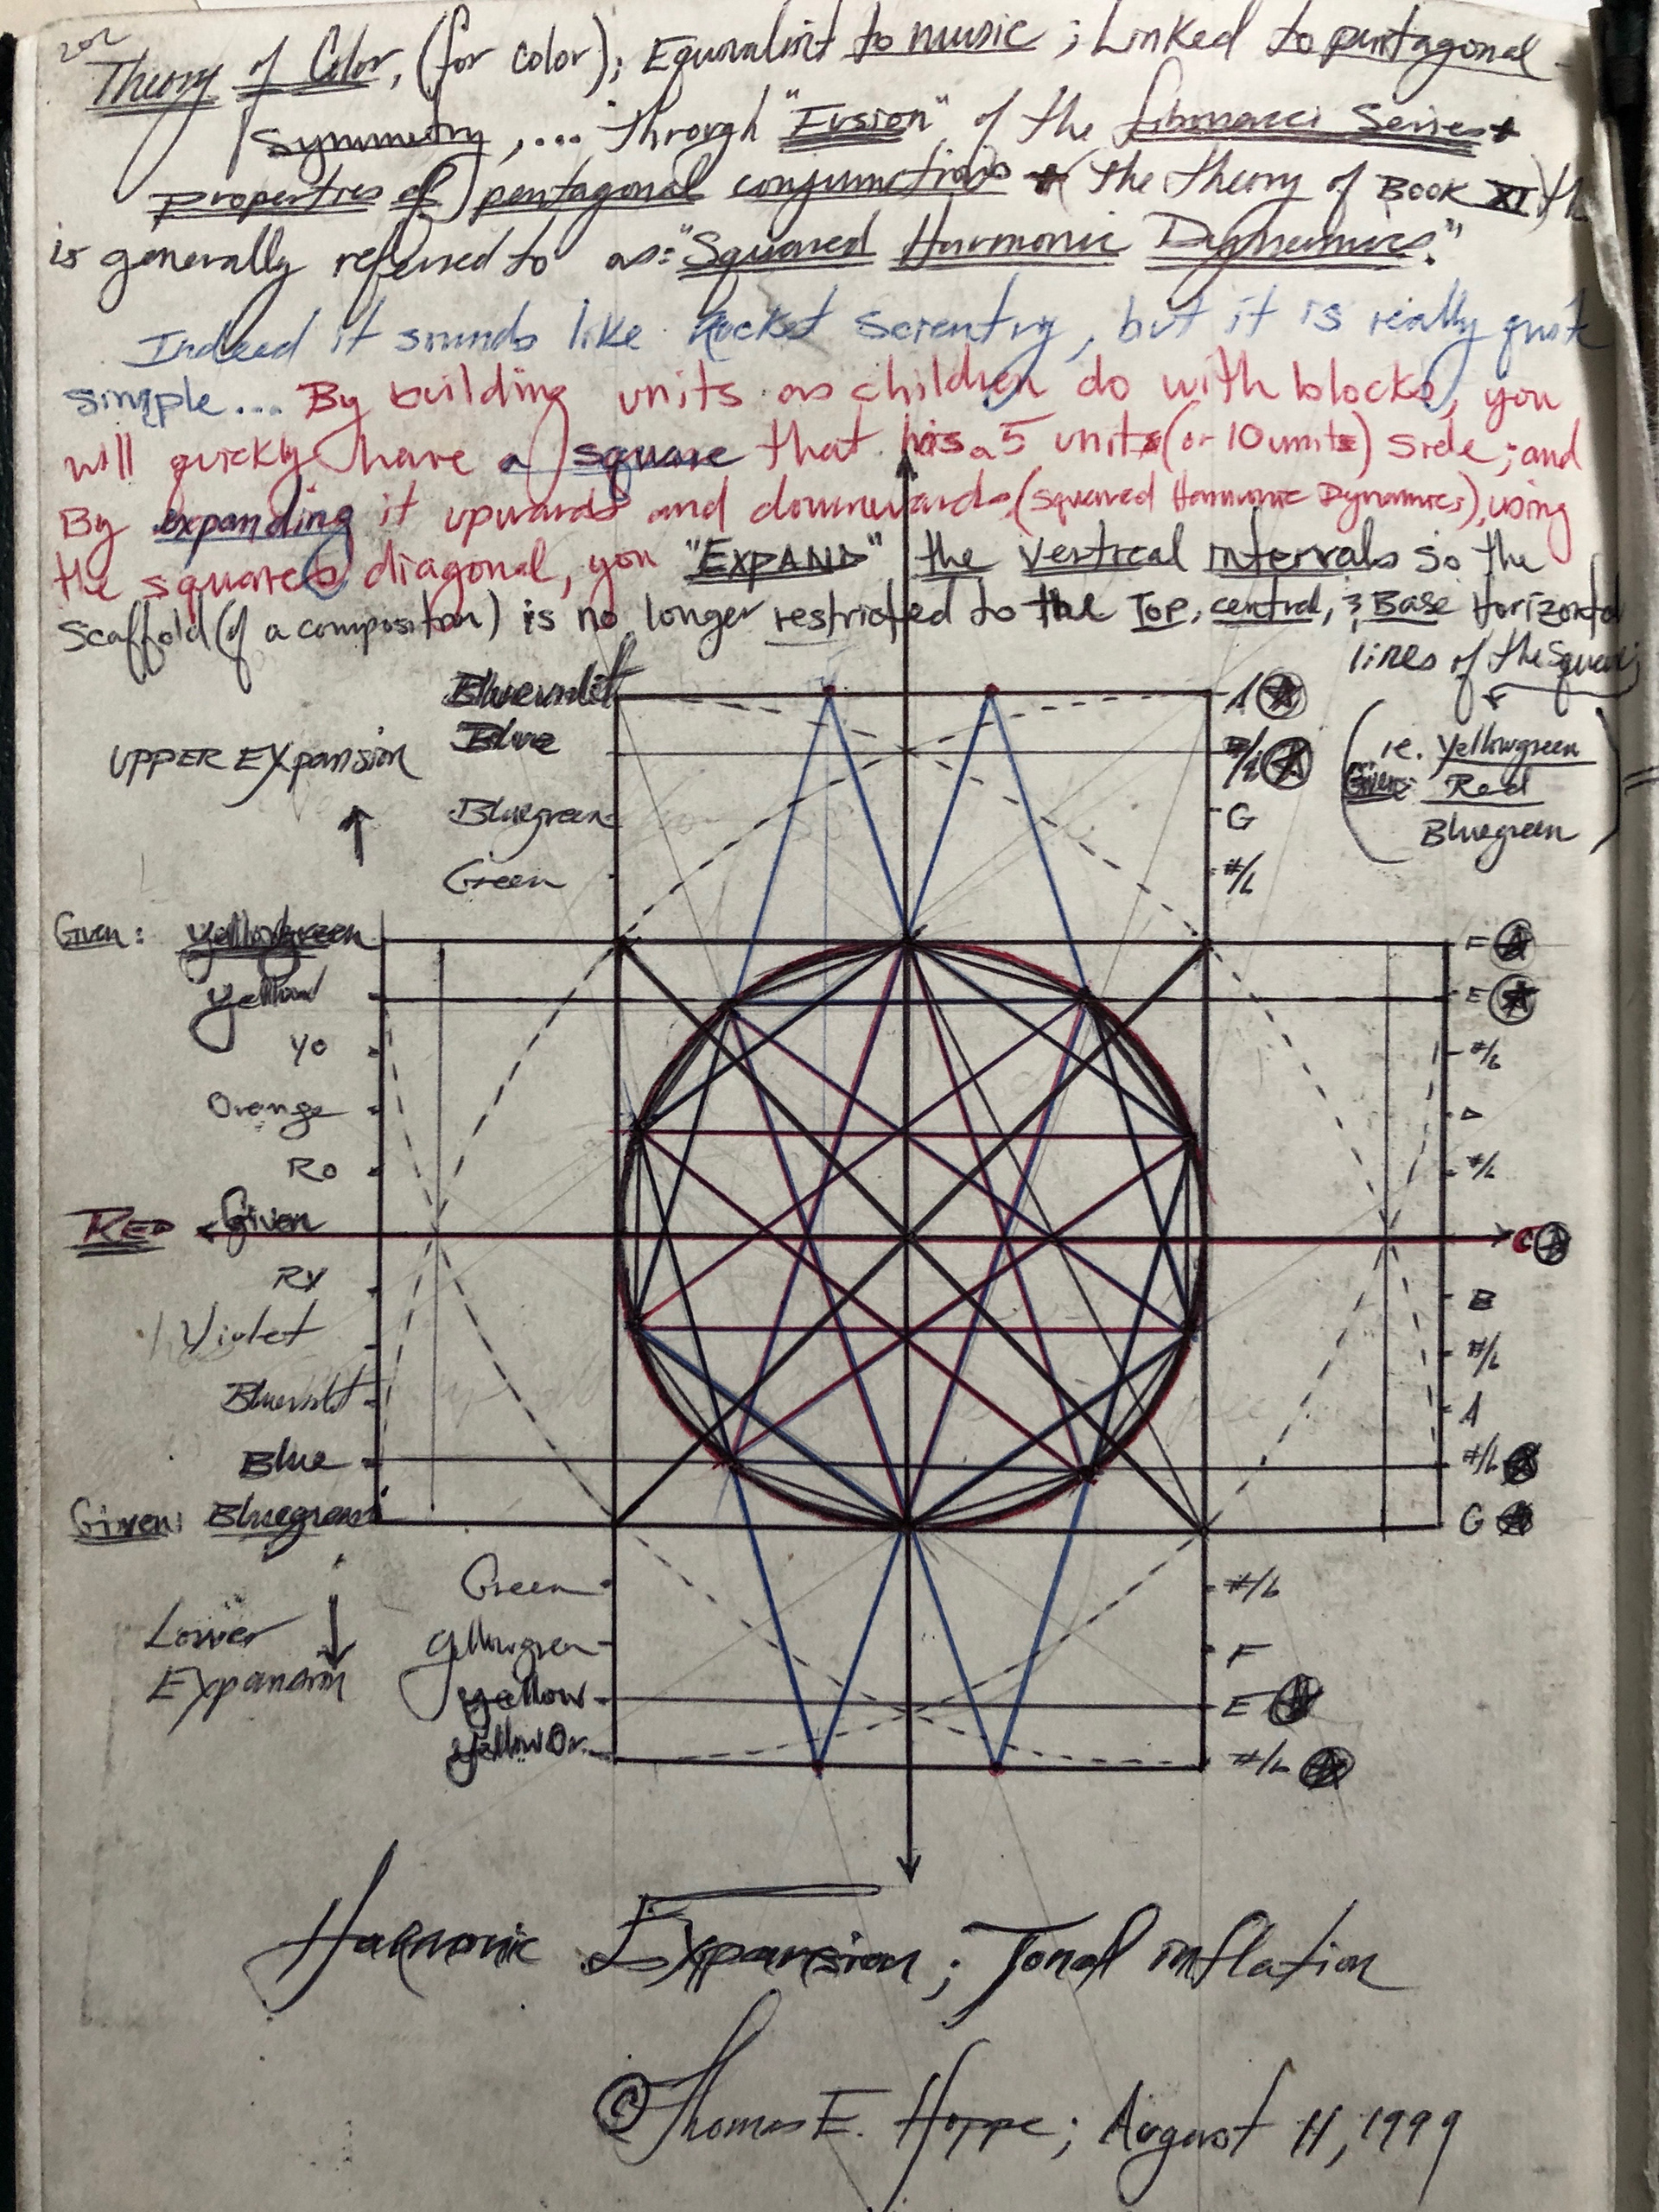 202
Theory of Color, (for color); Equivalent to music; Linked to pentagonal
Symmetry,.... through "Fusion" of the Fibonacci Series +
properties of pentagonal conjunctions + (the theory of BOOK XI) th
is generally referred to as: "Squared Harmonic Dynamics."
Indeed it sounds like Rocket Scientry, but it is really quite
simple... By building units as children do with blocks, you
will quickly have a square that has a 5 units (or 10 units) side; and
By expanding it upwards and downwards, (squared Harmonic Dynamics), using
the squares diagonal, you "EXPAND" the vertical intervals so the
Scaffold (of a composition) is no longer restricted to the Top, central, & Base Horizontal
lines of the Square;
Blueviolet A
UPPER EXPANSION Blue #/b (ie. Yellowgreen
Given: Red
Bluegreen G Bluegreen)
Green #/b
Given: Yellowgreen F
Yellow E
YO #/b
Orange D
RO #/b
RED Given C
RV B
Violet #/b
Blueviolet A
Blue #/b
Given: Bluegreen G
Green #/b
Lower Yellowgreen F
Expansion Yellow E
YellowOr. #/b
Harmonic Expansion; Tonal inflation
© Thomas E. Hoppe; August 11, 1999